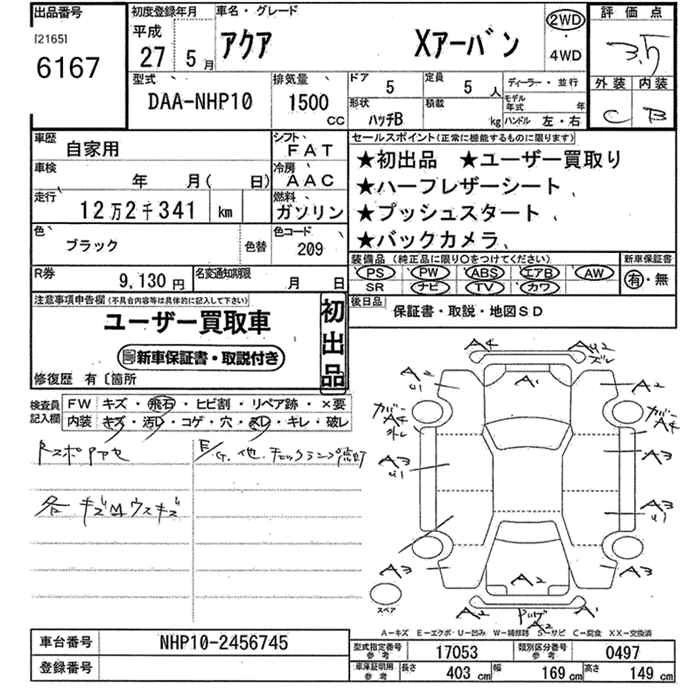 出品番号
[2165]
6167
初度登録年月
平成
27年 5月
車名・グレード
アクア Xアーバン
2WD
・
4WD
評価点
3.5
外装 内装
C B
型式
DAA-NHP10
排気量
1500 CC
ドア 5
定員 5人
形状 ハッチB
積載 kg
ディーラー・並行
モデル年式 年
ハンドル 左・右
車歴 自家用
シフト FAT
車検 年 月( 日)
冷房 AAC
走行 12万2千341 km
燃料 ガソリン
色 ブラック
色替
色コード 209
R券 9,130円
名変通知期限 月 日
セールスポイント(正常に機能するものに限ります)
★初出品 ★ユーザー買取り
★ハーフレザーシート
★プッシュスタート
★バックカメラ
装備品(純正品に限り○をつけてください)
PS PW ABS エアB AW
SR ナビ TV カワ
新車保証書
有・無
後日品
保証書・取説・地図SD
注意事項申告欄(不具合内容等は具体的に記入して下さい)
ユーザー買取車
新車保証書・取説付き
初出品
修復歴 有〔箇所
検査員記入欄
FW キズ・飛石・ヒビ割・リペア跡・×要
内装 キズ・汚レ・コゲ・穴・スレ・キレ・破レ
E/G、他、チェックランプ点灯
各 キズ
A4
A1
A2
ズレ
A2
A4
A4
A3
A3
A3
A3
A3
A2
A2
A1
A2
スペア
A-キズ E-エクボ・U-凹み W-補修跡 S-サビ C-腐食 XX-交換済
車台番号 NHP10-2456745
登録番号
型式指定番号 参考 17053
類別区分番号 参考 0497
車庫証明用 参考 長さ 403 cm 幅 169 cm 高さ 149 cm